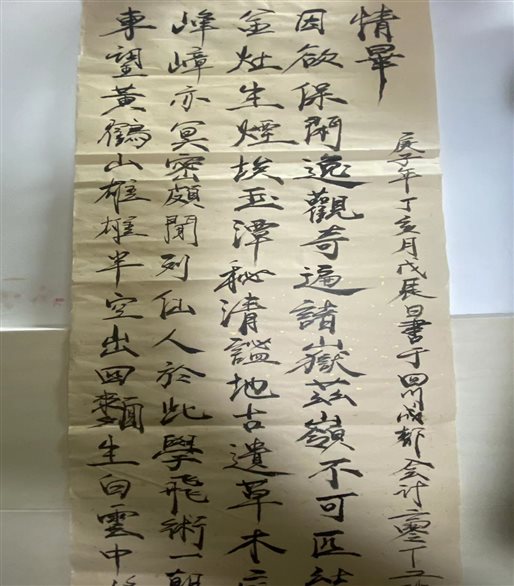 東望黃鶴山雄雄半空出四面生白雲中
峰嶂亦冥密頗聞列仙人於此學飛術一朝
金灶生煙埃玉潭秘清謐地古遺草木
因欲保閑逸觀奇遍諸嶽茲嶺不可匹結
情畢
庚子年丁亥月戊辰日書于四川成都会计